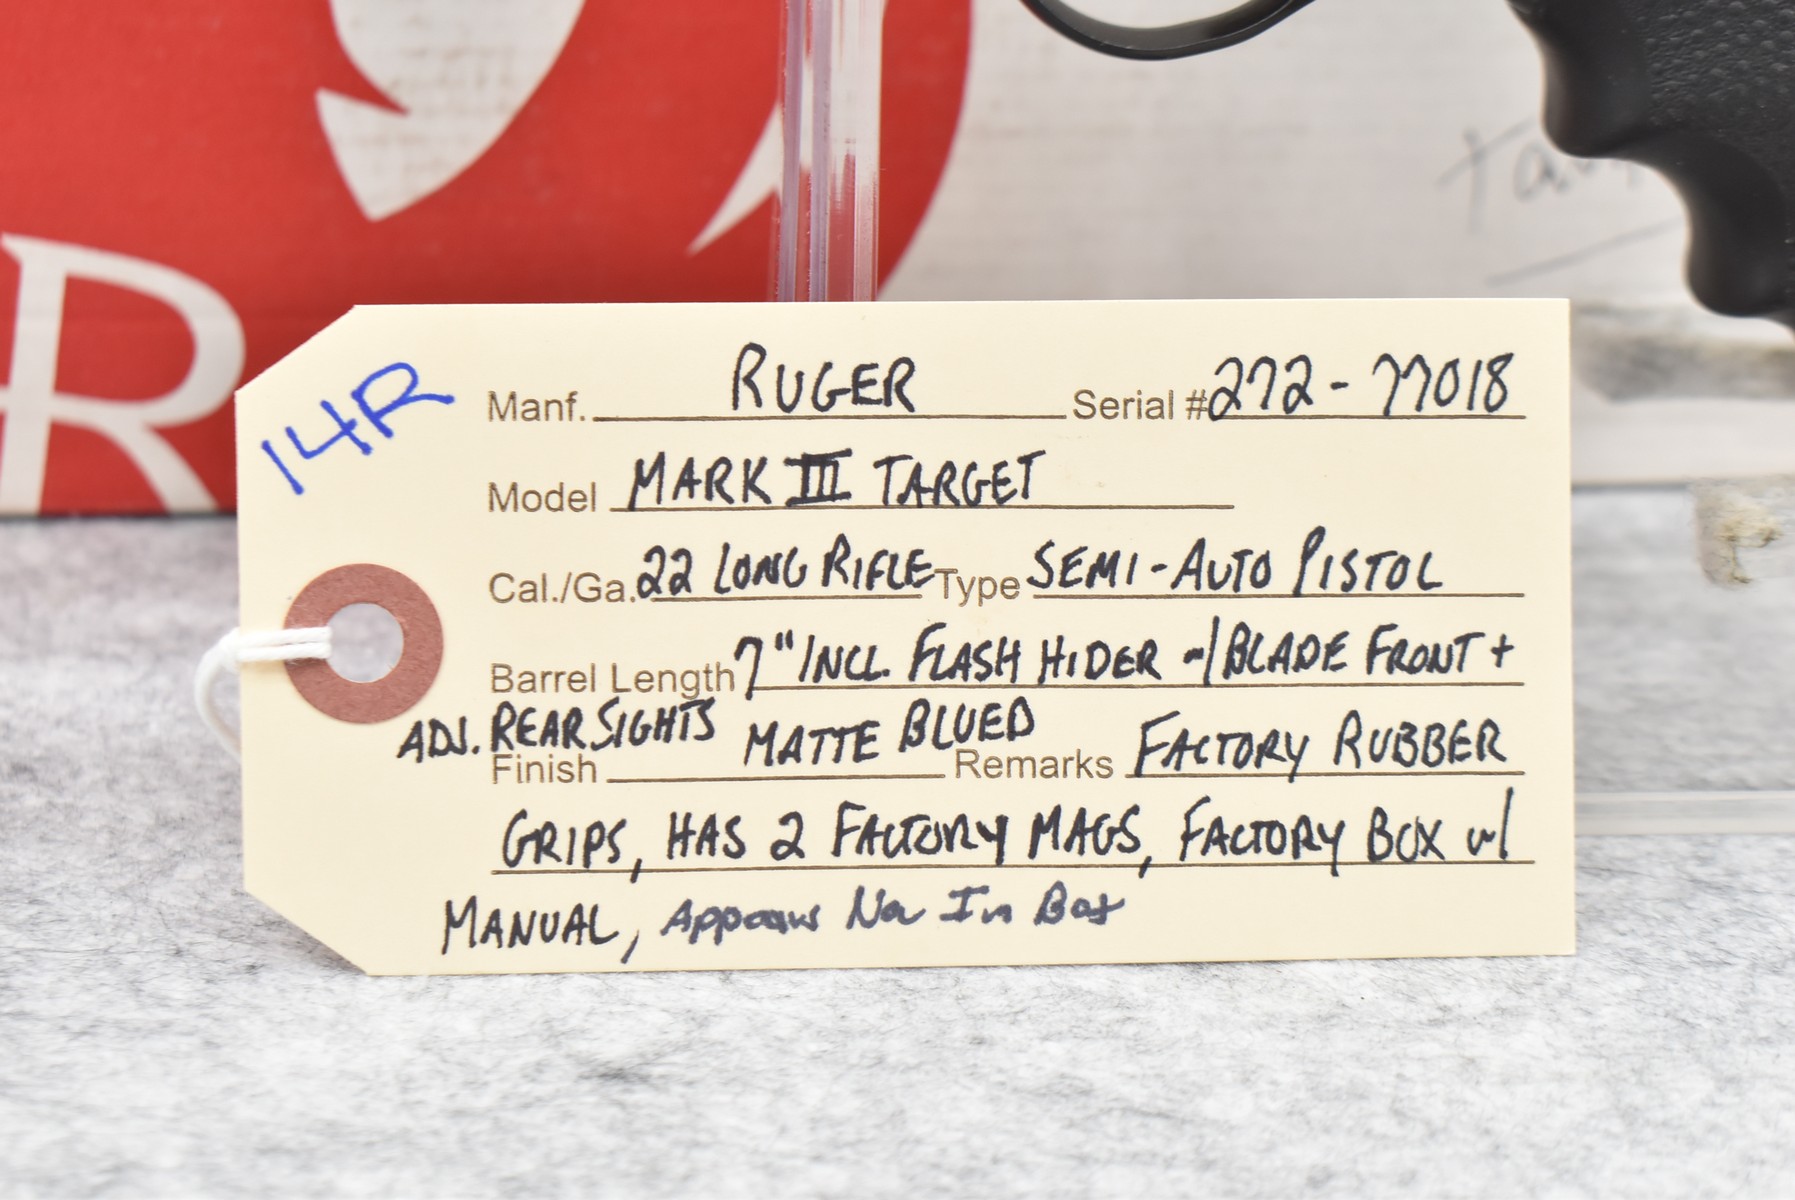 R
14R
Manf. RUGER Serial # 272-77018
Model MARK III TARGET
Cal./Ga. 22 LONG RIFLE Type SEMI-AUTO PISTOL
Barrel Length 7" INCL. FLASH HIDER w/ BLADE FRONT +
ADJ. REAR SIGHTS
Finish MATTE BLUED Remarks FACTORY RUBBER
GRIPS, HAS 2 FACTORY MAGS, FACTORY BOX w/
MANUAL, Appears New In Box